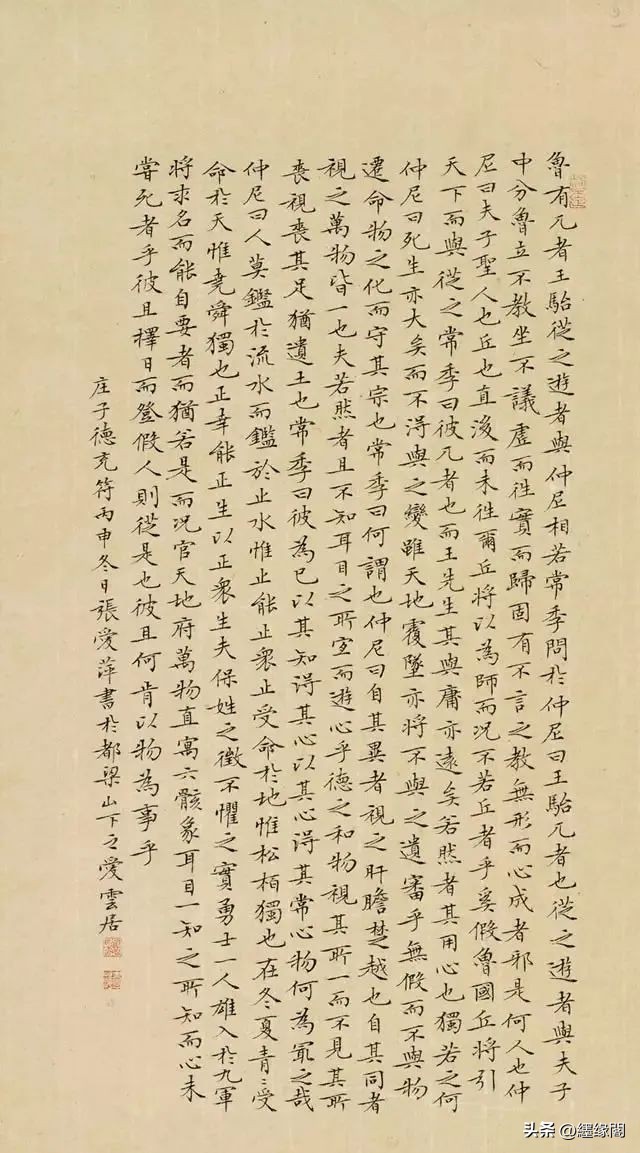 魯有兀者王駘從之遊者與仲尼相若常季問於仲尼曰王駘兀者也從之遊者與夫子
中分魯立不教坐不議虛而往實而歸固有不言之教無形而心成者邪是何人也仲
尼曰夫子聖人也丘也直後而未往爾丘將以為師而況不若丘者乎奚假魯國丘將引
天下而與從之常季曰彼兀者也而王先生其與庸亦遠矣若然者其用心也獨若之何
仲尼曰死生亦大矣而不得與之變雖天地覆墜亦將不與之遺審乎無假而不與物
遷命物之化而守其宗也常季曰何謂也仲尼曰自其異者視之肝膽楚越也自其同者
視之萬物皆一也夫若然者且不知耳目之所宜而遊心乎德之和物視其所一而不見其所
喪視喪其足猶遺土也常季曰彼為已以其知得其心以其心得其常心物何為冣之哉
仲尼曰人莫鑑於流水而鑑於止水惟止能止衆止受命於地惟松柏獨也在冬夏青〻受
命於天惟堯舜獨也正幸能正生以正衆生夫保姓之徵不懼之實勇士一人雄入於九軍
將求名而能自要者而猶若是而况官天地府萬物直寓六骸象耳目一知之所知而心未
嘗死者乎彼且擇日而登假人則從是也彼且何肯以物為事乎
庄子德充符丙申冬日張愛萍書於都梁山下之愛雲居
头条@纒缘閣